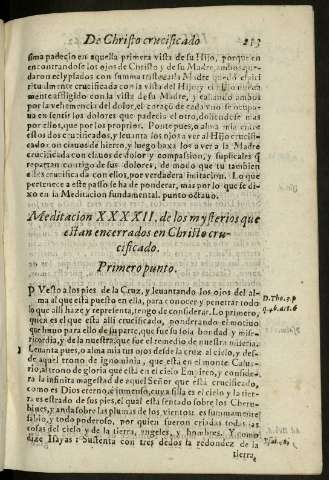 De Christo crucificado 213
sima padecio en aquella primera vista de su Hijo, porque en
encontrandose los ojos de Christo y de su Madre, ambos que-
daron eclypsados con summa tristeza: la Madre quedò espi
ritualmente crucificada con la vista del Hijo, y el Hijo nueva
mente affligido con la vista de su Madre, y callando ambos
por la vehemencia del dolor, el coraçõ de cada vno se ocupa
ua en sentir los dolores que padecia el otro, doliendose mas
por ellos, que por los proprios. Ponte pues, o alma mia entre
estos dos crucificados, y leuanta los ojos a ver al Hijo crucifi-
cado con clauos de hierro, y luego baxa los a ver a la Madre
crucificada con clauos de dolor y compassion, y suplicales q̃
repartan contigo de sus dolores, de modo que tu tambien
estes crucificada con ellos, por verdadera imitacion. Lo que
pertenece a este passo se ha de ponderar, mas por lo que se di-
xo en la Meditacion fundamental, punto octauo.
Meditacion XXXXII. de los mysterios que
estan encerrados en Christo cru-
cificado.
Primero punto.
PVesto a los pies de la Cruz, y leuantando los ojos del al-
ma al que està puesto en ella, para conocer y penetrar todo
lo que alli haze y representa, tengo de considerar. Lo primero,
quien es el que està alli crucificado, ponderando el motiuo
que huuo para ello de su parte, que fue su sola bondad y mise-
ricordia, y de la nuestra, que fue el remedio de nuestra miseria.
Leuanta pues, o alma mia tus ojos desde la cruz al cielo, y des-
de aquel trono de ignominia, que està en el monte Calua-
rio, al trono de gloria que està en el cielo Empireo, y conside-
ra la infinita magestad de aquel Señor que està crucificado,
como es Dios eterno, è inmenso, cuya silla es el cielo y la tier-
ra es estrado de sus pies, el qual està sentado sobre los Cheru-
bines, y anda sobre las plumas de los vientos: es summamente
sabio, y todo poderoso, por quien fueron criadas todas las
cosas del cielo y de la tierra, angeles, y hombres. Y como
dize Isayas: Sustenta con tres dedos la redondez de la
tierra,
D. Tho. 3. p
q. 46. art. 6